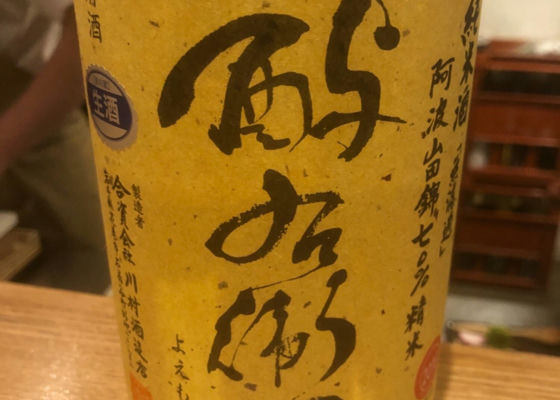 純米酒「無濾過」
阿波山田錦、七〇%精米
酉与右衛
よえも
生酒
製造者
合資会社川村酒造店
酒